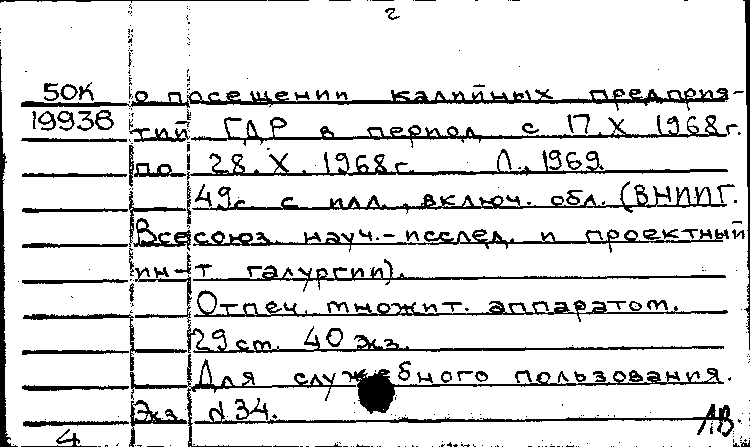 2
50К о посещении калийных предприя-
19936 тий ГДР в период с 17.X 1968г.
по 28.X.1968г. Л., 1969.
49с. с илл., включ. обл. (ВНИИГ.
Всесоюз. науч.-исслед. и проектный
ин-т галургии).
Отпеч. множит. аппаратом.
29 см. 40 экз.
Для служебного пользования.
Экз. №34.
4 ЛВ